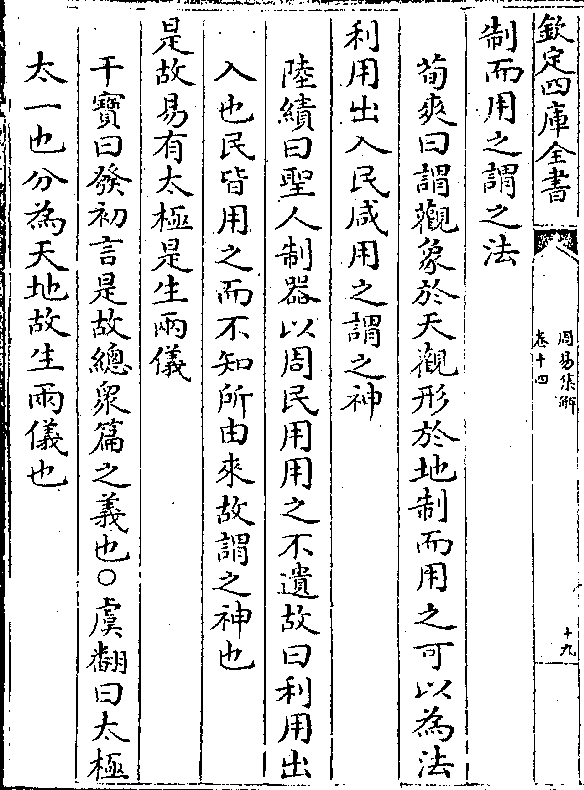 欽定四庫全書
周易集解
卷十四
十九
制而用之謂之法
荀爽曰謂觀象於天觀形於地制而用之可以為法
利用出入民咸用之謂之神
陸績曰聖人制器以周民用用之不遺故曰利用出
入也民皆用之而不知所由來故謂之神也
是故易有太極是生兩儀
干寶曰發初言是故總衆篇之義也○虞翻曰太極
太一也分為天地故生兩儀也